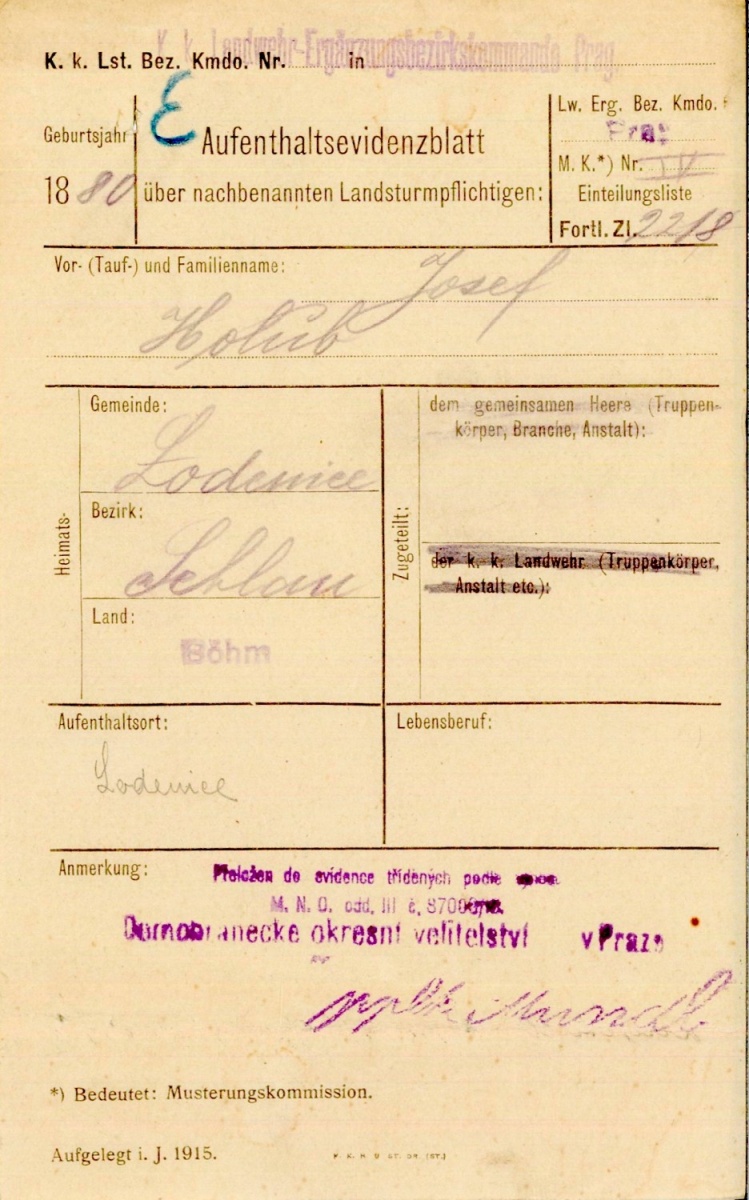 K. k. Landwehr-Ergänzungsbezirkskommando Prag.
K. k. Lst. Bez. Kmdo. Nr. in
E
Geburtsjahr
1880
Aufenthaltsevidenzblatt
über nachbenannten Landsturmpflichtigen:
Lw. Erg. Bez. Kmdo.
Prag
M. K.*) Nr. IV
Einteilungsliste
Fortl. Zl. 2218
Vor- (Tauf-) und Familienname: Josef
Holub
Heimats-
Gemeinde:
Lodenice
Bezirk:
Schlan
Land:
Böhm
Zugeteilt:
dem gemeinsamen Heere (Truppen-
körper, Branche, Anstalt):
der k. k. Landwehr (Truppenkörper,
Anstalt etc.):
Aufenthaltsort:
Lodenice
Lebensberuf:
Anmerkung:
Přeložen do evidence tříděných podle
M. N. O. odd. III č. 8700
Domobranecké okresní velitelství v Praze
*) Bedeutet: Musterungskommission.
Aufgelegt i. J. 1915.